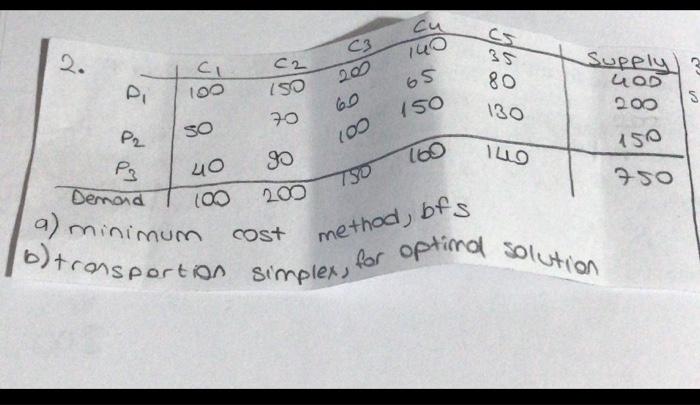 2. C1 C2 C3 C4 C5 Supply
P1 100 150 200 140 35 400
P2 50 70 60 65 80 200
P3 40 90 100 150 130 150
Demand 100 200 150 160 140 750
a) minimum cost method, bfs
b) transportion simplex, for optimal solution